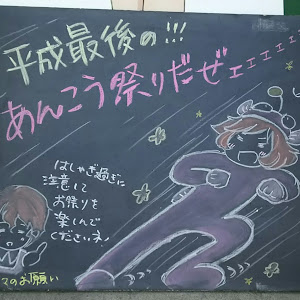 平成最後の!!!
あんこう祭りだぜェェェェェ
はしゃぎ過ぎに
注意して
お祭りを
楽しんで
くださいネ♪
マのお願い